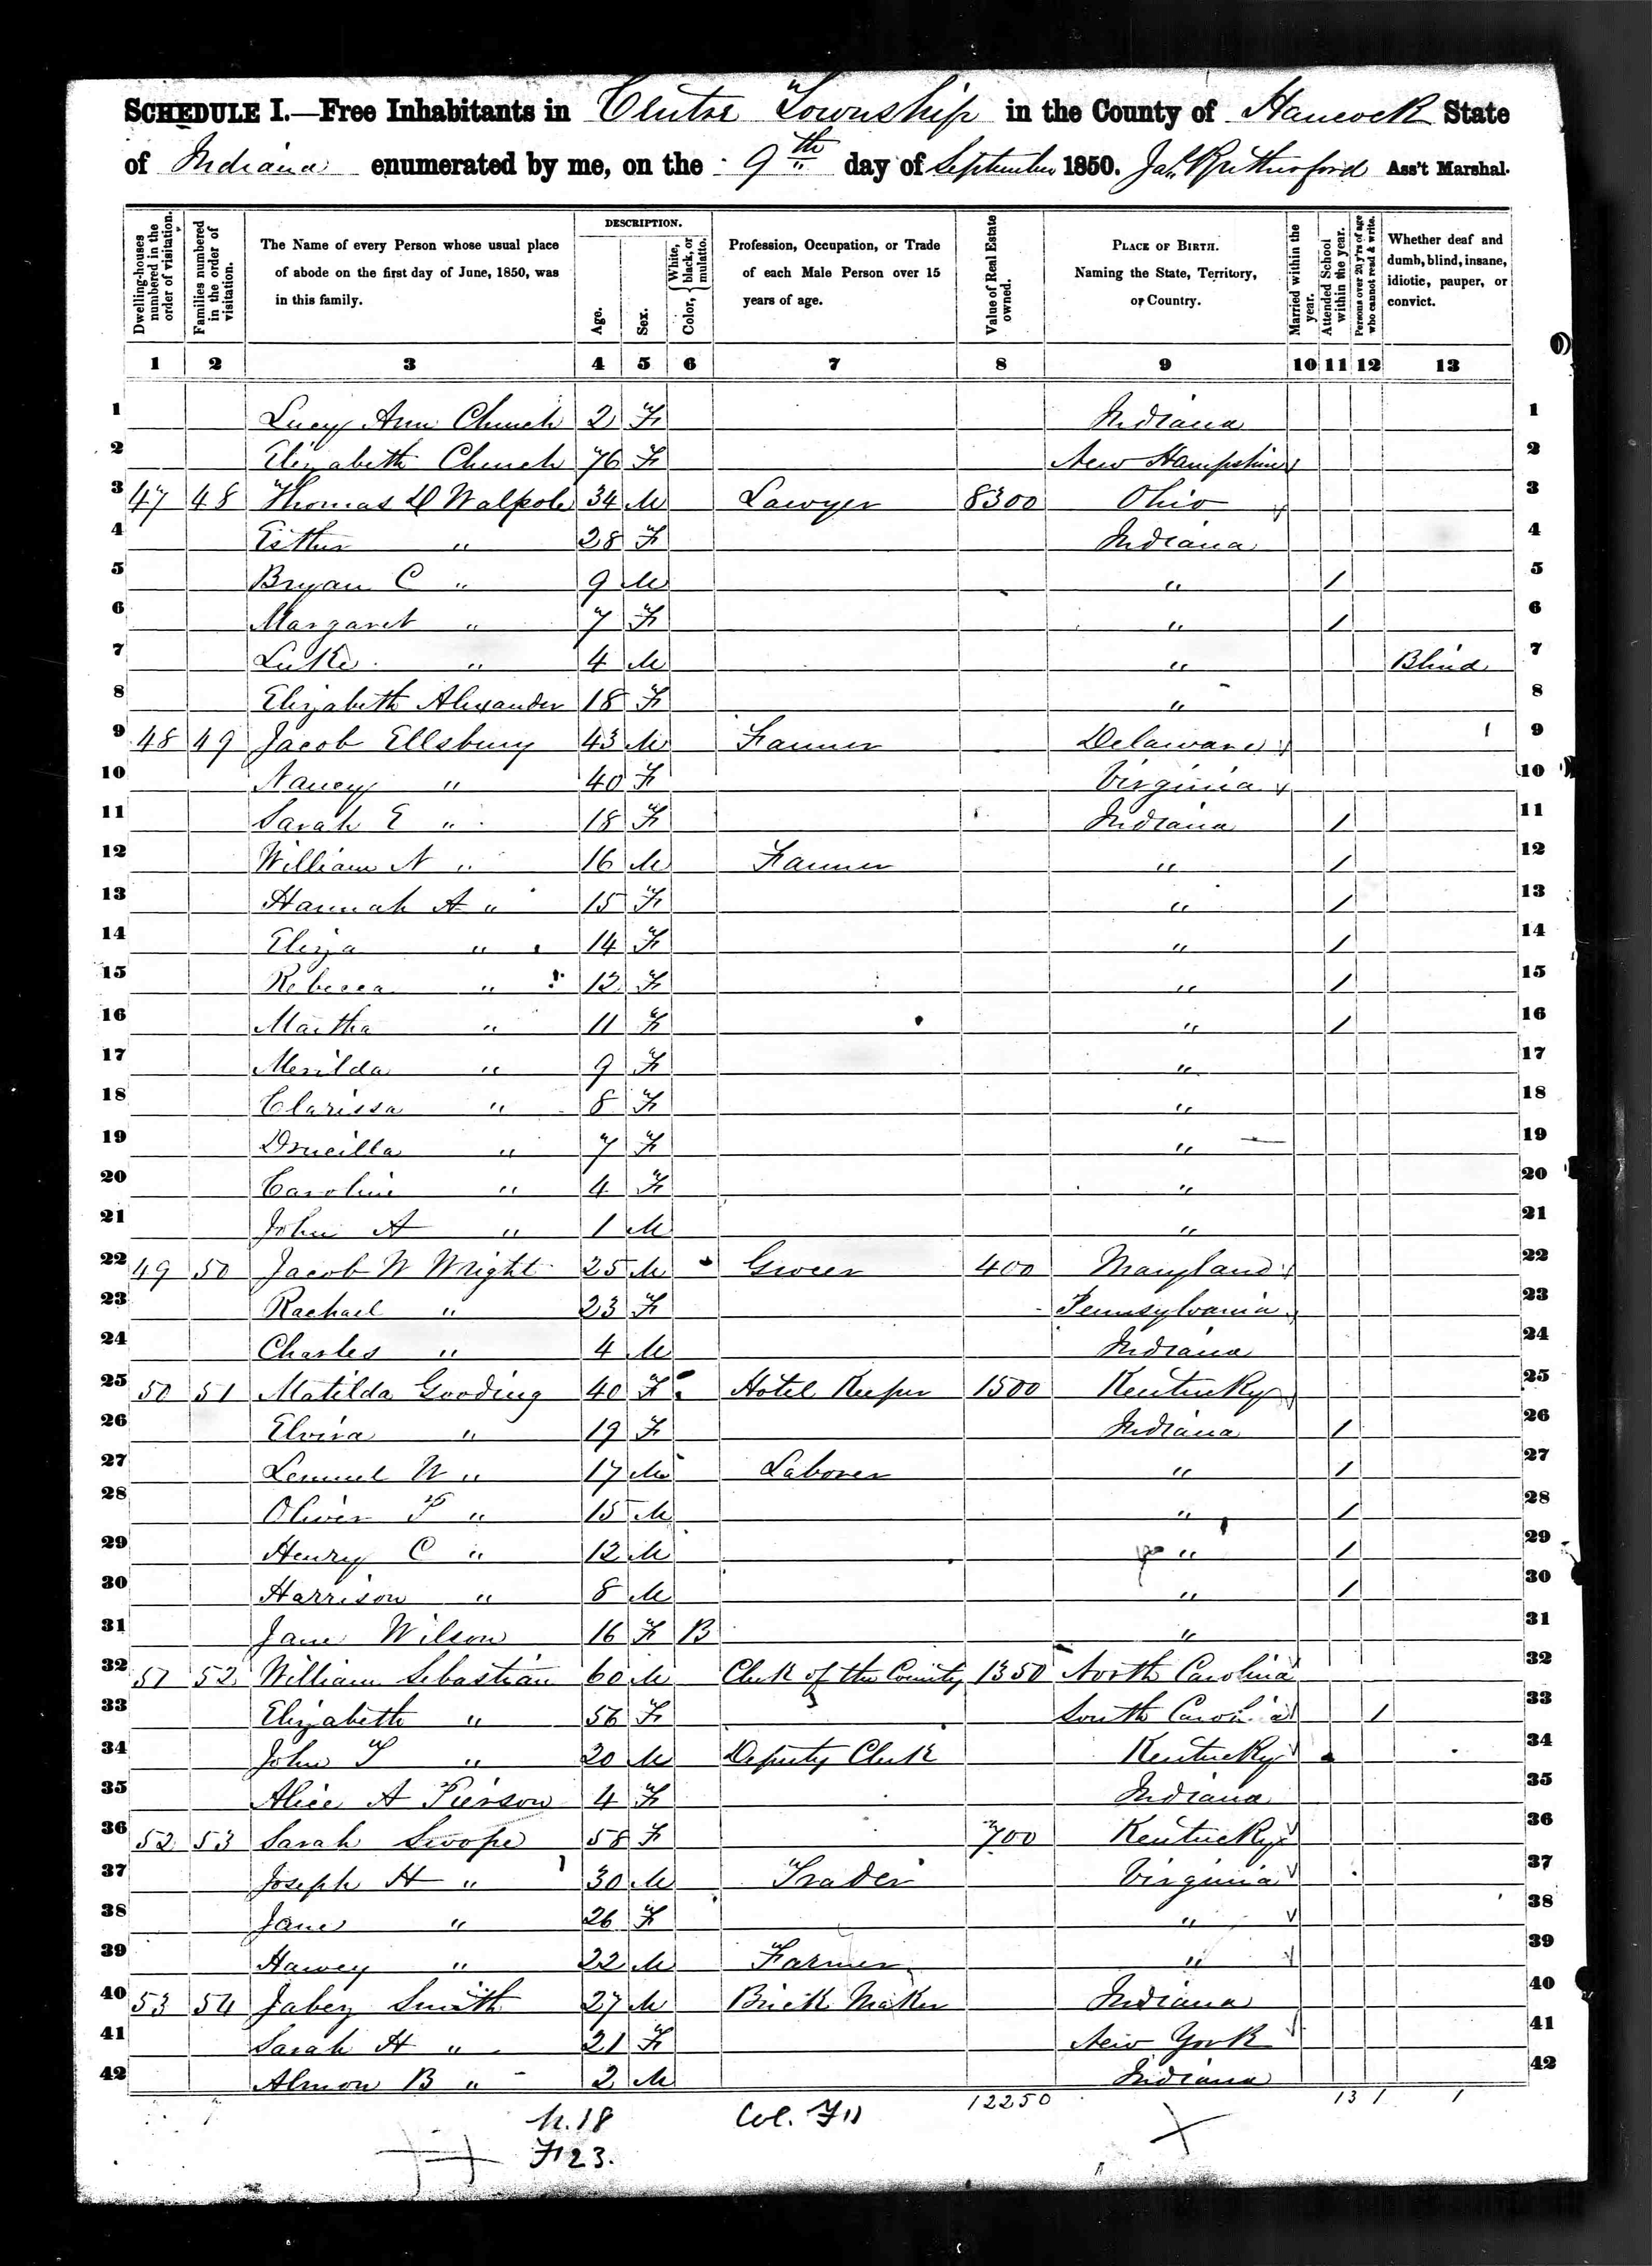 SCHEDULE I.—Free Inhabitants in Centre Township in the County of Hancock State
of Indiana enumerated by me, on the 9th day of September 1850. Jas Rutherford Ass't Marshal.
Dwelling-houses numbered in the order of visitation.
Families numbered in the order of visitation.
The Name of every Person whose usual place of abode on the first day of June, 1850, was in this family.
DESCRIPTION.
Age.
Sex.
Color, { White, black, or mulatto.
Profession, Occupation, or Trade of each Male Person over 15 years of age.
Value of Real Estate owned.
PLACE OF BIRTH. Naming the State, Territory, or Country.
Married within the year.
Attended School within the year.
Persons over 20 y'rs of age who cannot read & write.
Whether deaf and dumb, blind, insane, idiotic, pauper, or convict.
1 2 3 4 5 6 7 8 9 10 11 12 13
1 Lucy Ann Church 2 F Indiana 1
2 Elizabeth Church 76 F New Hampshire 2
3 47 48 Thomas D Walpole 34 M Lawyer 8300 Ohio 3
4 Esther " 28 F Indiana 4
5 Bryan C " 9 M " / 5
6 Margaret " 7 F " / 6
7 Luke " 4 M " Blind 7
8 Elizabeth Alexander 18 F " 8
9 48 49 Jacob Ellsbury 43 M Farmer Delaware 9
10 Nancy " 40 F Virginia 10
11 Sarah E " 18 F Indiana / 11
12 William N " 16 M Farmer " / 12
13 Hannah A " 15 F " / 13
14 Eliza " 14 F " / 14
15 Rebecca " 12 F " / 15
16 Martha " 11 F " / 16
17 Merilda " 9 F " 17
18 Clarissa " 8 F " 18
19 Drucilla " 7 F " 19
20 Caroline " 4 F " 20
21 John A " 1 M " 21
22 49 50 Jacob W Wright 25 M Grocer 400 Maryland 22
23 Rachael " 23 F Pennsylvania 23
24 Charles " 4 M Indiana 24
25 50 51 Matilda Gooding 40 F Hotel Keeper 1500 Kentucky 25
26 Elvira " 19 F Indiana / 26
27 Lemuel W " 17 M Laborer " / 27
28 Oliver P " 15 M " / 28
29 Henry C " 12 M " / 29
30 Harrison " 8 M " / 30
31 Jane Wilson 16 F B " 31
32 51 52 William Sebastian 60 M Clerk of the County 1350 North Carolina 32
33 Elizabeth " 56 F South Carolina / 33
34 John S " 20 M Deputy Clerk Kentucky 34
35 Alice A Pierson 4 F Indiana 35
36 52 53 Sarah Swope 58 F 700 Kentucky 36
37 Joseph H " 30 M Trader Virginia 37
38 Jane " 26 F " 38
39 Harvey " 22 M Farmer " 39
40 53 54 Jabez Smith 27 M Brick Maker Indiana 40
41 Sarah H " 21 F New York 41
42 Almon B " 2 M Indiana 42
12250 13 1 1
M. 18 Col. F 1
F 23.